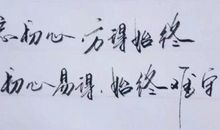 忘初心 方得始终
初心易得 始终难守